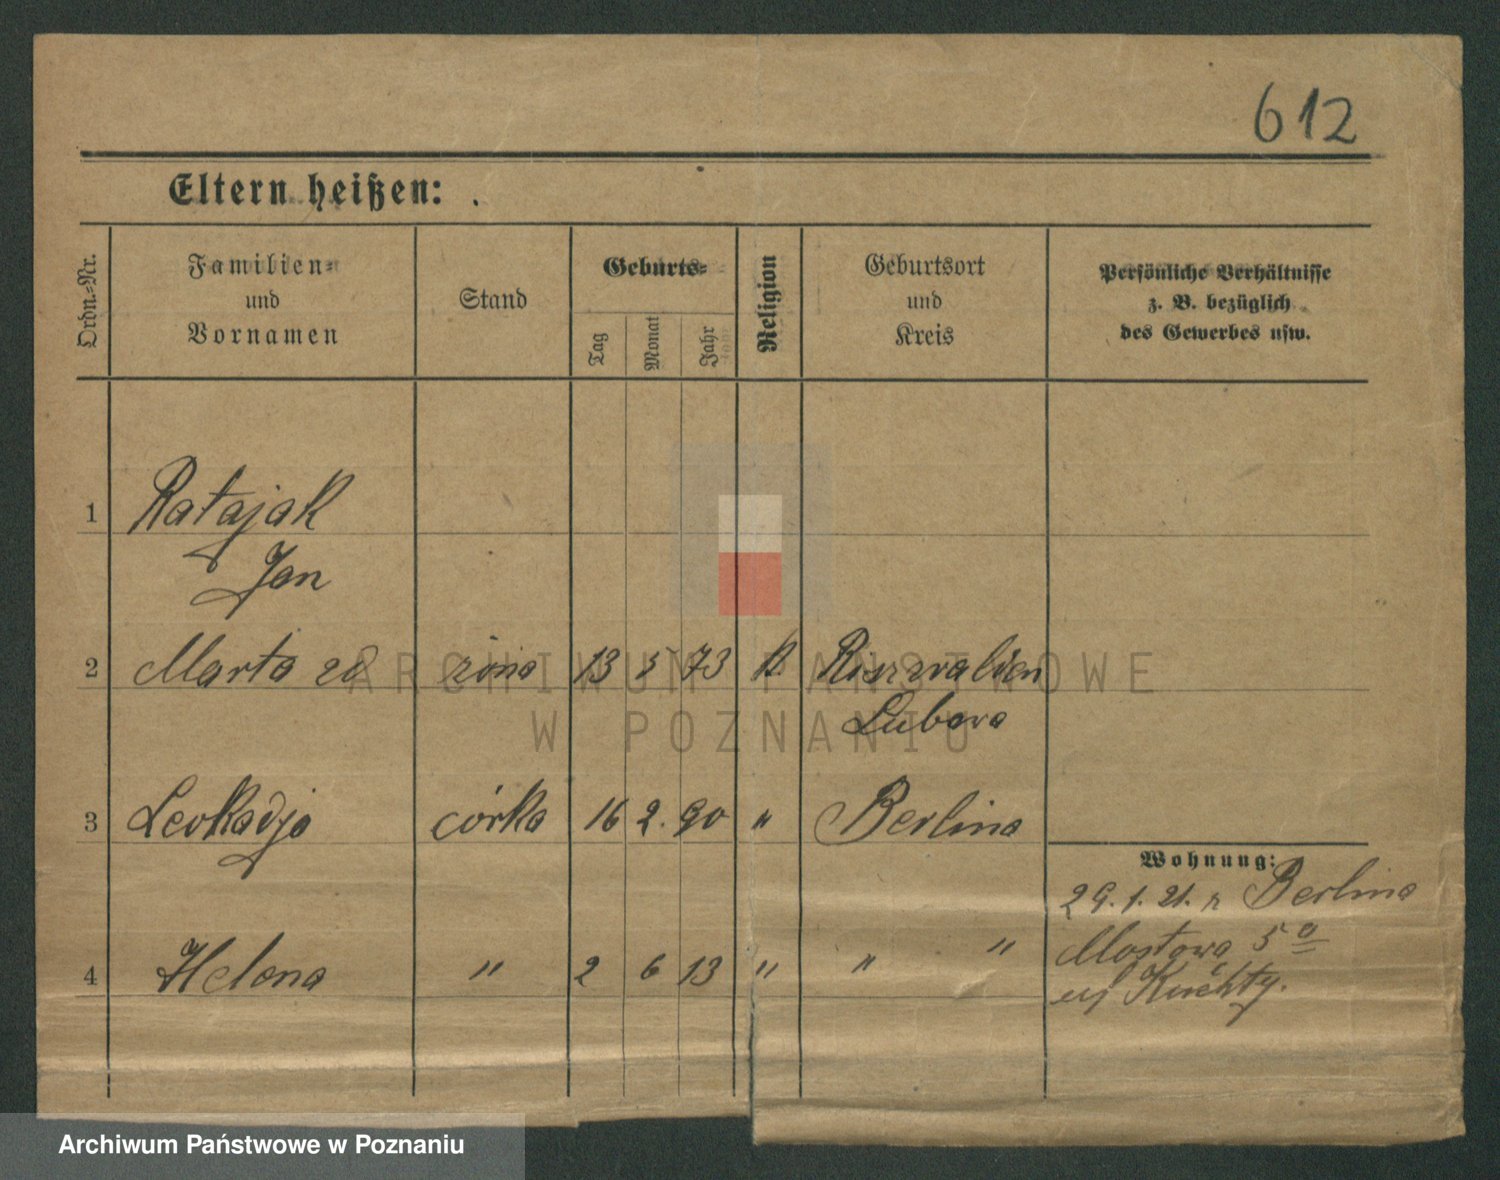 612
Eltern heißen:
Ordn.-Nr.
Familien-
und
Vornamen
Stand
Geburts-
Tag
Monat
Jahr
Religion
Geburtsort
und
Kreis
Persönliche Verhältnisse
z. B. bezüglich
des Gewerbes usw.
1 Ratajak
Jan
2 Marta żona 13 5 73 k.
Lubawa
3 Leokadja córka 16 2. 90 " Berlina
Wohnung:
29. 1. 21. z Berlina
Mostowa 5 a
4 Helena " 2 6 13 " " "
u/ Kuchty.
ARCHIWUM PAŃSTWOWE
W POZNANIU
Archiwum Państwowe w Poznaniu